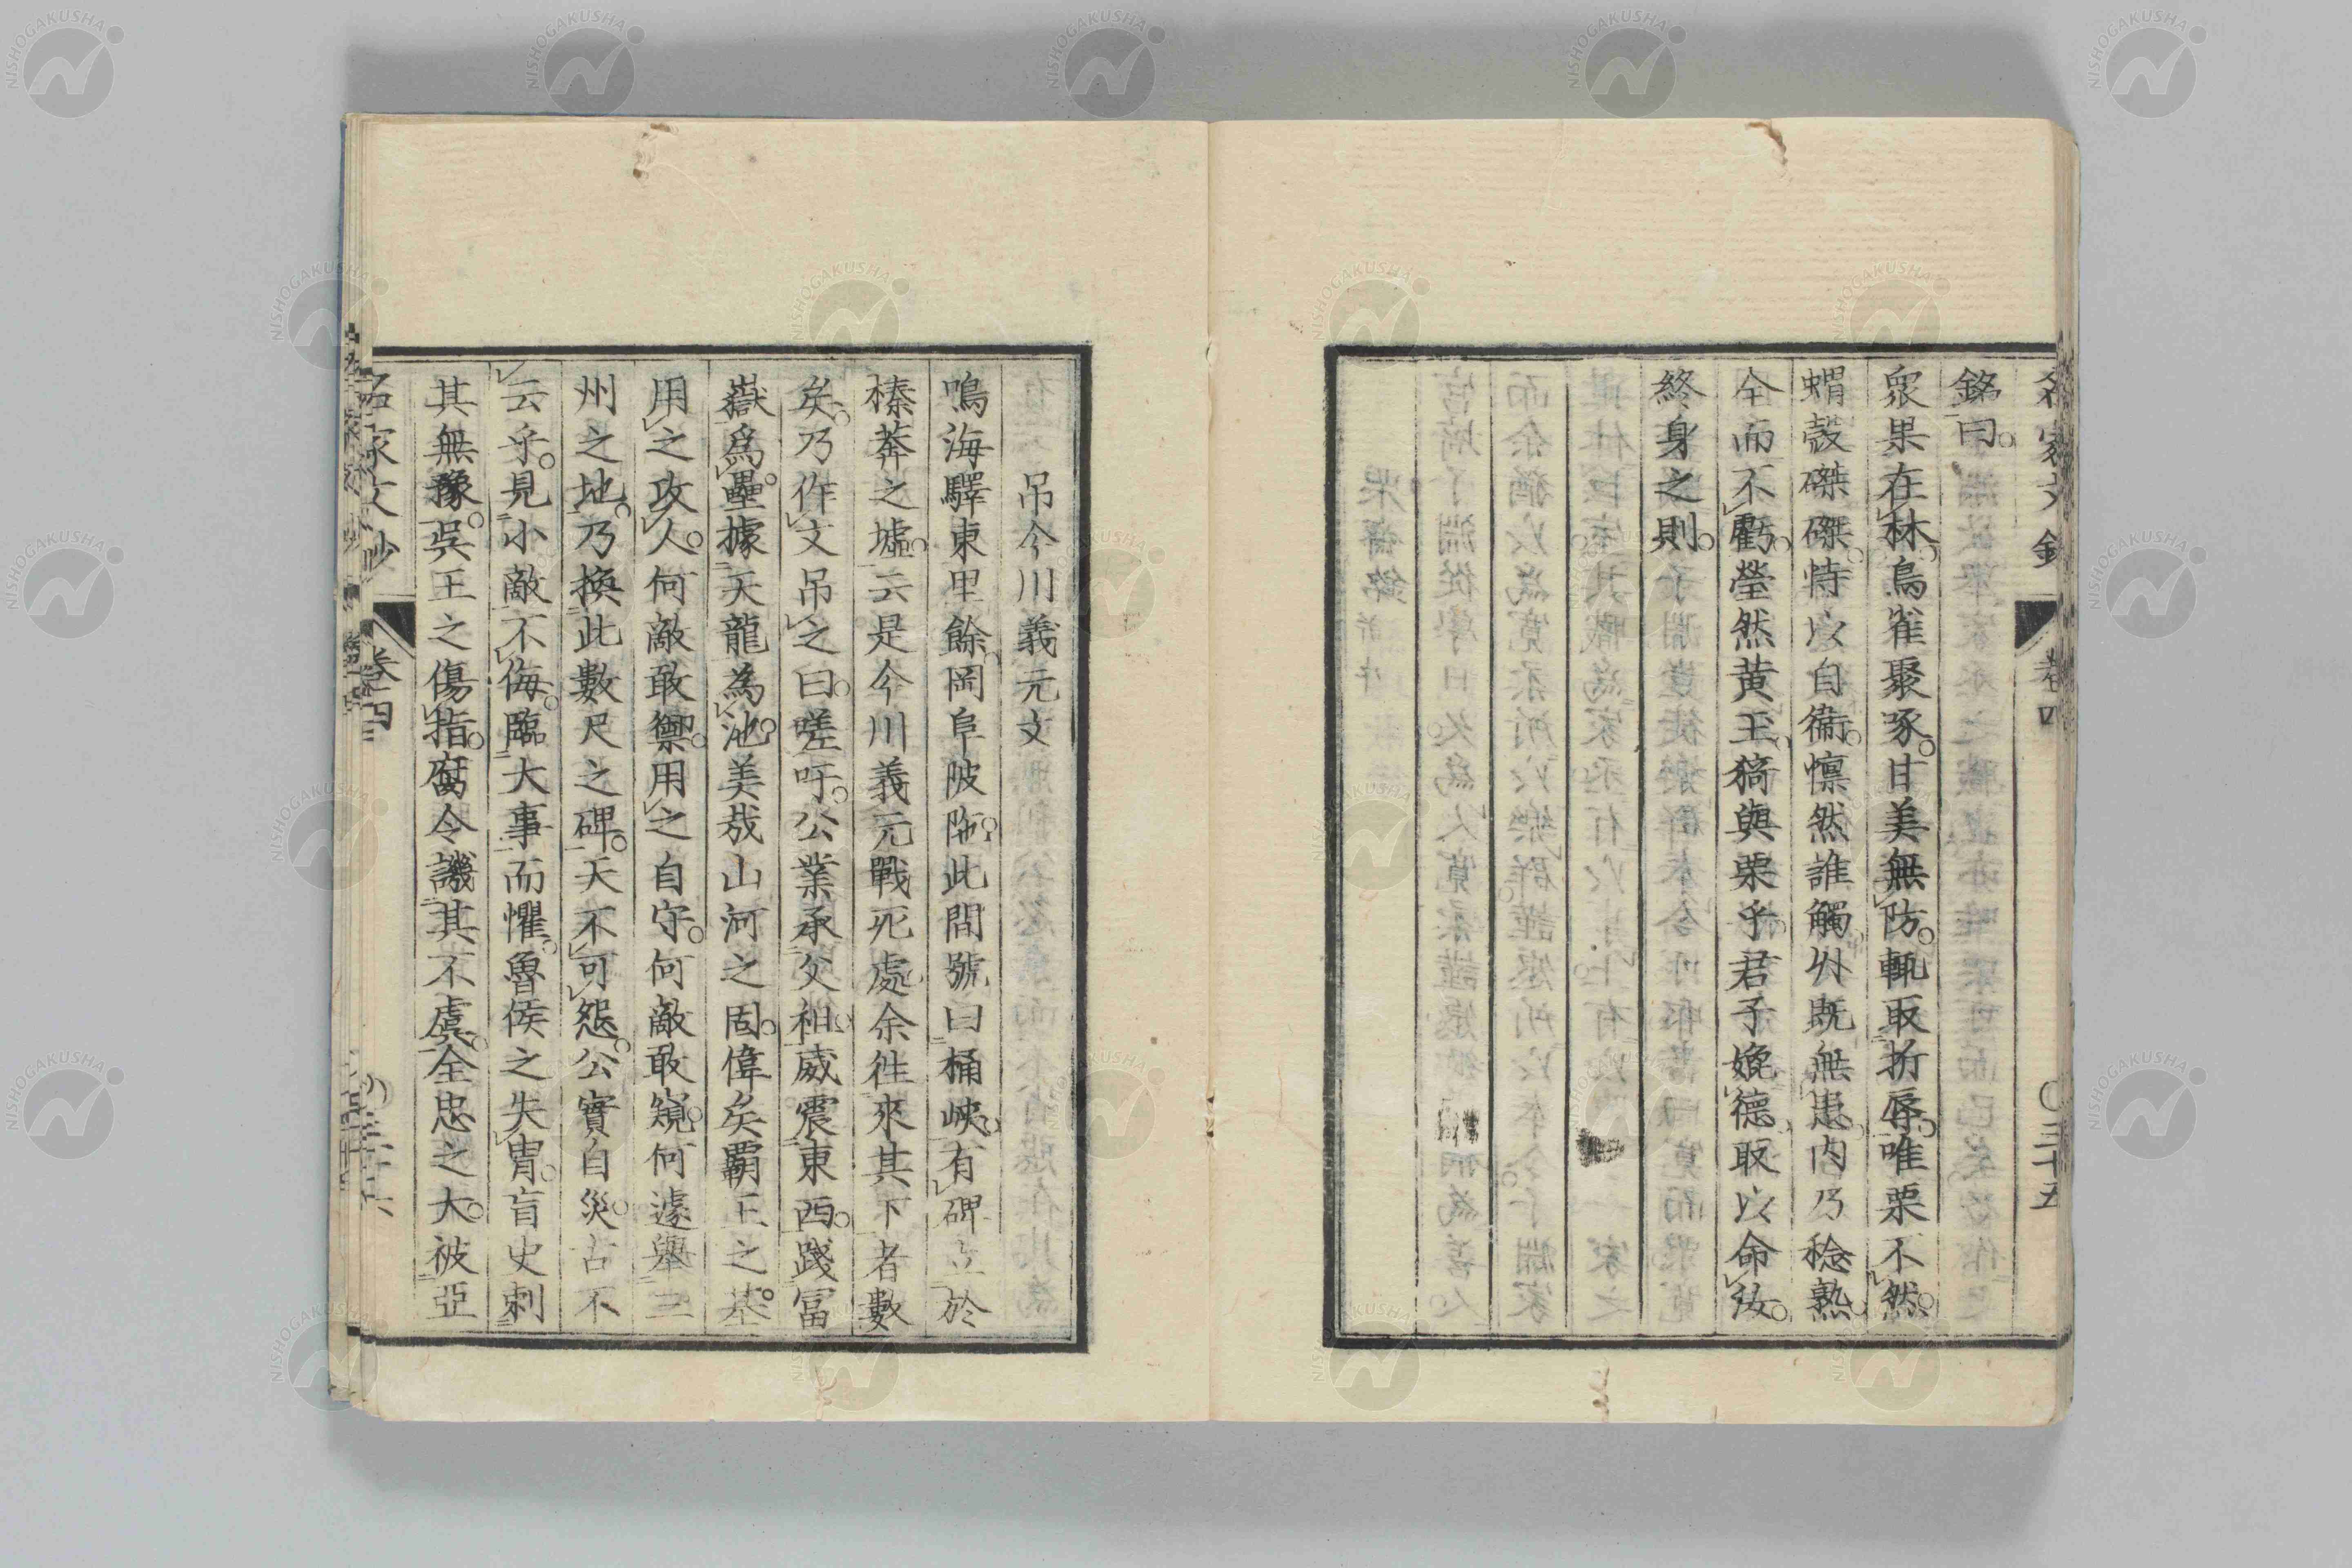 銘曰。
衆果在林。鳥雀聚啄。甘美無防。輒取折辱。唯栗不然。
蝟殼磔磔。恃以自衞。懍然誰觸。外既無患。内乃稔熟。
全而不虧。瑩然黄玉。猗與栗乎。君子娩德。取以命汝。
終身之則。
卷四
三十五
吊今川義元文
鳴海驛東里餘。岡阜陂陁。此間號曰桶峽。有碑立於
榛莽之墟。云是今川義元戰死處。余往來其下者數
矣。乃作文吊之曰。嗟吁。公業承父祖。威震東西。踐富
嶽爲壘。據天龍為池。美哉山河之固。偉矣霸王之基。
用之攻人。何敵敢禦。用之自守。何敵敢窺。何遽舉三
州之地。乃換此數尺之碑。天不可怨。公實自災。古不
云乎。見小敵不侮。臨大事而懼。魯侯之失冑。盲史刺
其無豫。吳王之傷指。腐令譏其不虞。全忠之大。被亞
名家文抄
卷四
三十六
NISHOGAKUSHA